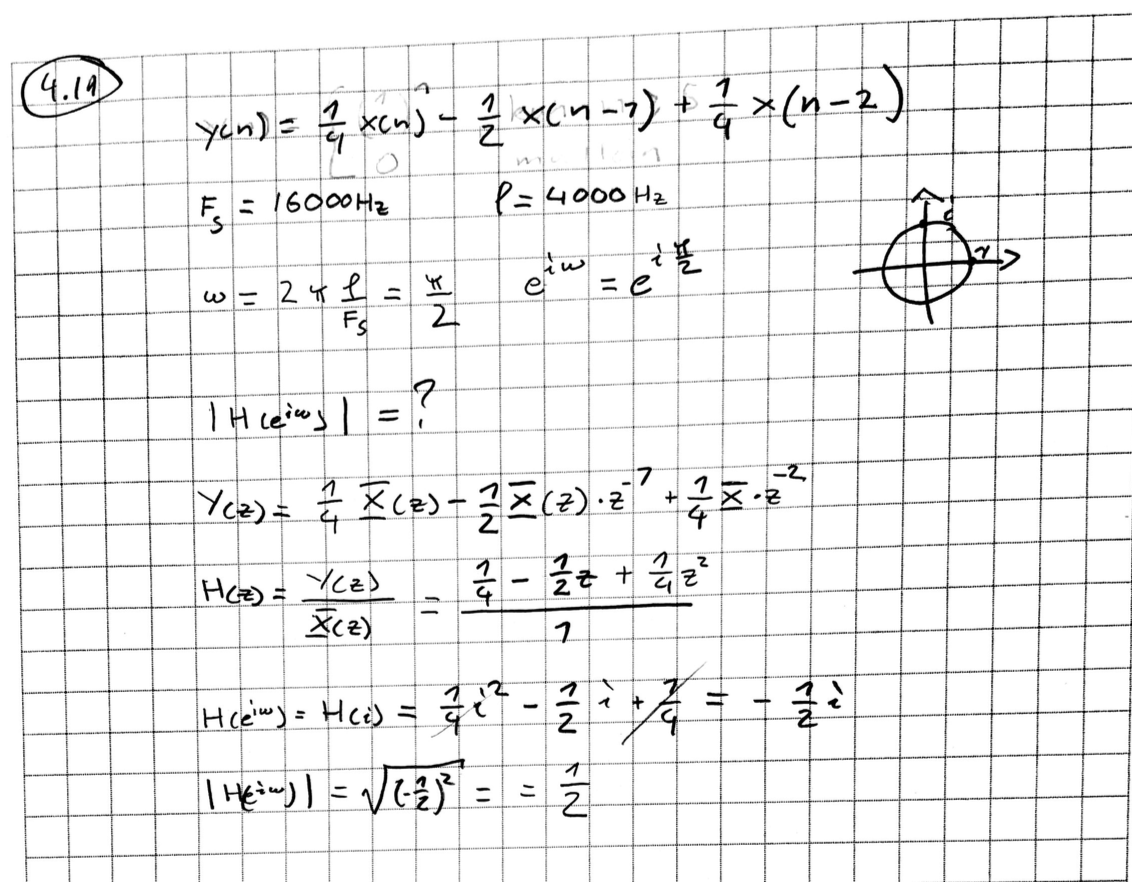 4.19
y(n) = 1/4 x(n) - 1/2 x(n-1) + 1/4 x(n-2)
F_s = 16000Hz f = 4000 Hz
ω = 2π f/F_s = π/2 e^{iω} = e^{i π/2}
|H(e^{iω})| = ?
Y(z) = 1/4 X(z) - 1/2 X(z)·z^{-1} + 1/4 X·z^{-2}
H(z) = Y(z)/X(z) = (1/4 - 1/2 z + 1/4 z^2)/1
H(e^{iω}) = H(i) = 1/4 i^2 - 1/2 i + 1/4 = - 1/2 i
|H(e^{iω})| = √((-1/2)^2) = = 1/2